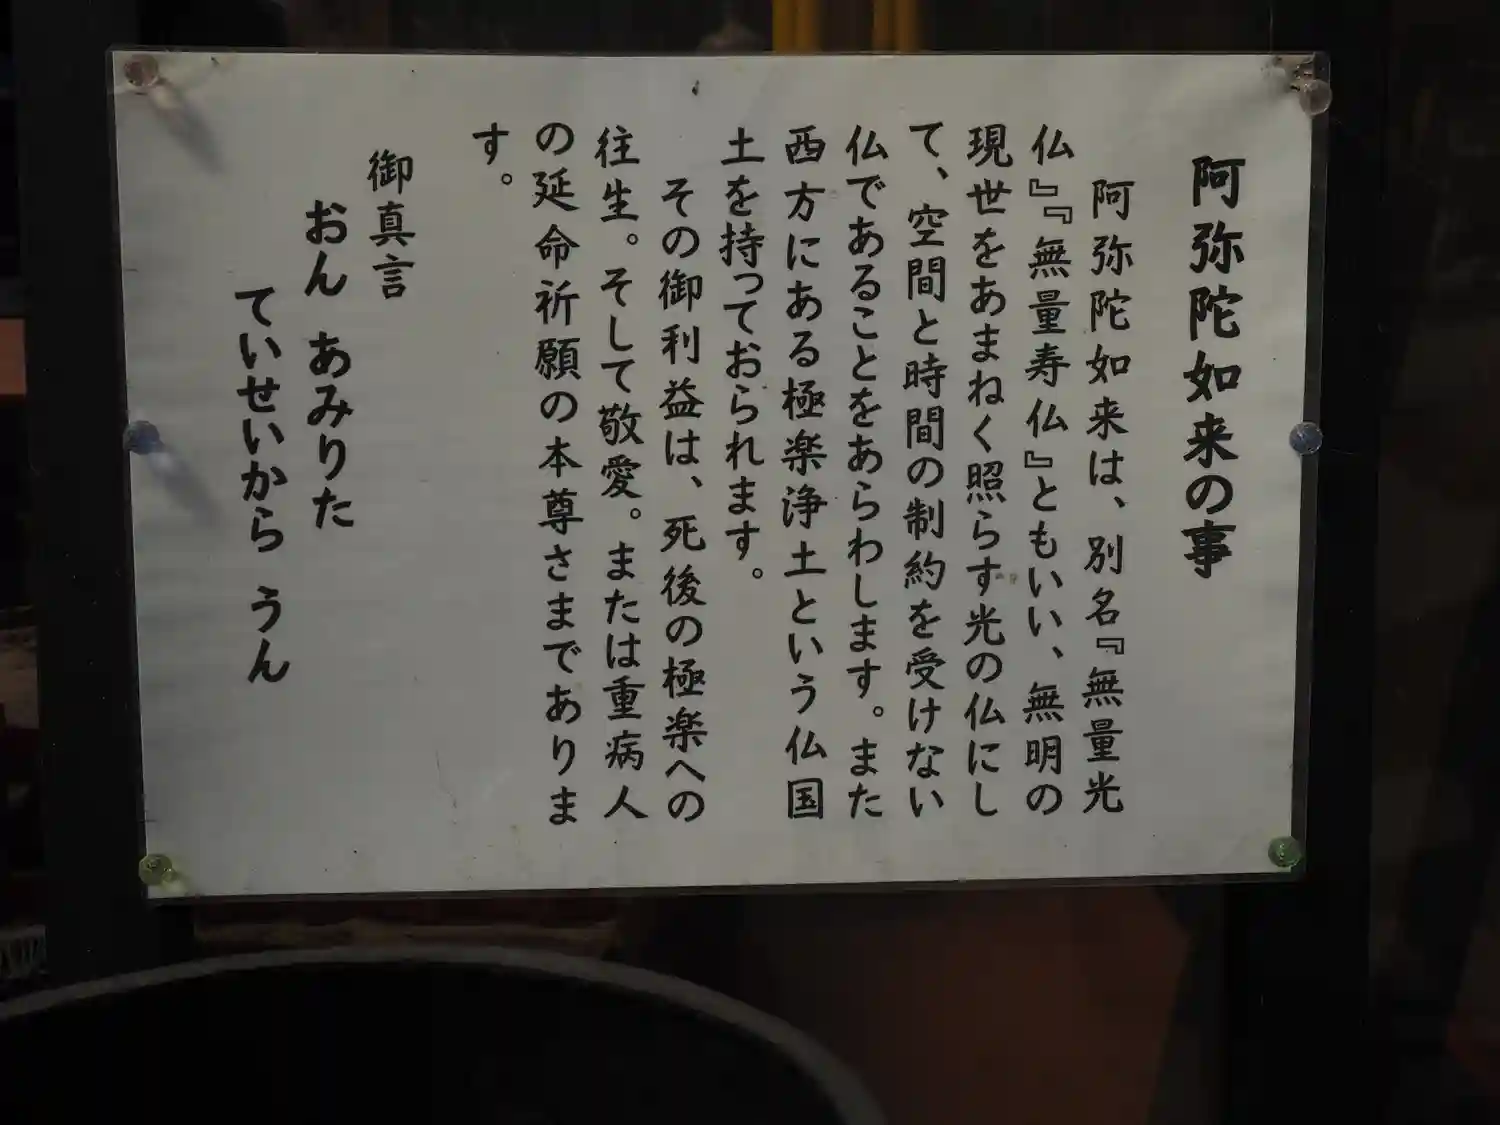 阿弥陀如来の事
阿弥陀如来は、別名『無量光
仏』『無量寿仏』ともいい、無明の
現世をあまねく照らす光の仏にし
て、空間と時間の制約を受けない
仏であることをあらわします。また
西方にある極楽浄土という仏国
土を持っておられます。
その御利益は、死後の極楽への
往生。そして敬愛。または重病人
の延命祈願の本尊さまでありま
す。
御真言
おん あみりた
ていせいから うん